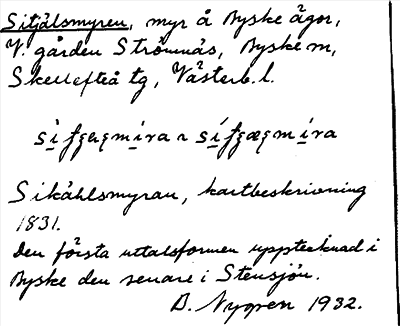 Sitjälsmyren, myr å Byske ägor,
V. gården Strömnäs, Byske sn,
Skellefteå tg, Västerb. l.
Sikåhlsmyran, kartbeskrivning
1831.
Den första uttalsformen upptecknad i
Byske den senare i Stensjön.
B. Nygren 1932.